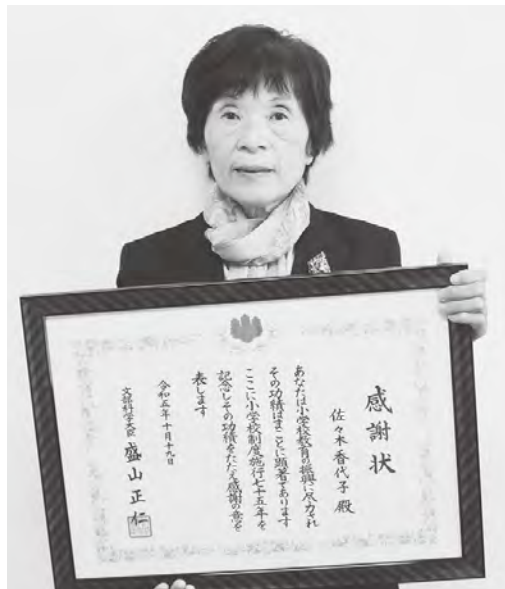 感謝状
佐々木香代子 殿
あなたは小学校教育の振興に尽力され
その功績はまことに顕著であります
ここに小学校制度施行七十五年を
記念しその功績をたたえ感謝の意を
表します
令和五年十月十九日
文部科学大臣 盛山正仁